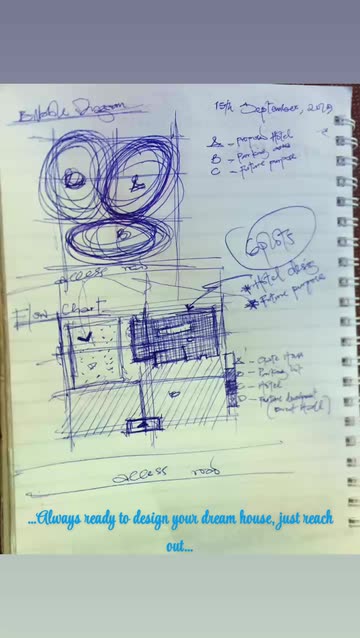 Bubble Diagram
15th September, 2019
A - proposed Hotel
B - Parking areas
C - future purpose
A
B
6 plots
access road
* Hotel design
* Future purpose
Flow Chart
A - Gate House
B - Parking lot
C - Hotel
D - Future development
A
access road
...Always ready to design your dream house, just reach
out...